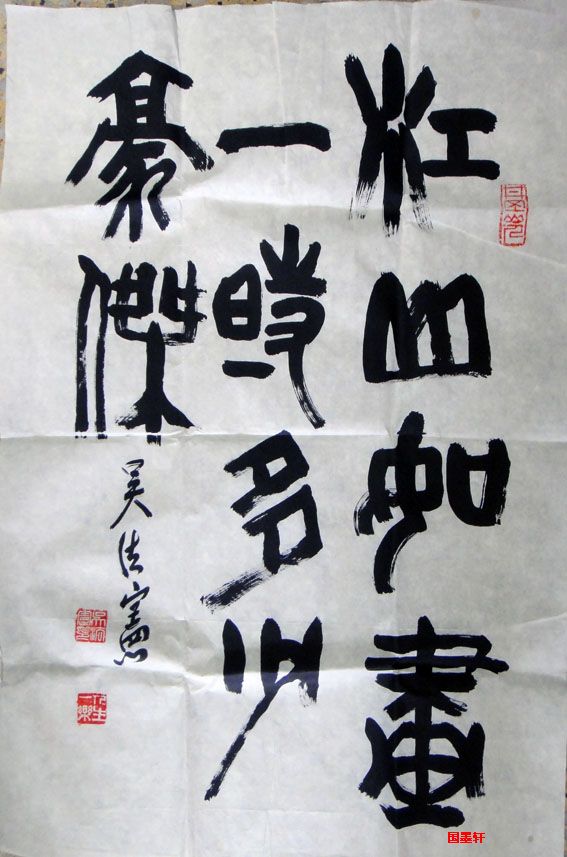 江山如畫
一時多少
豪傑
吴法憲
国墨轩